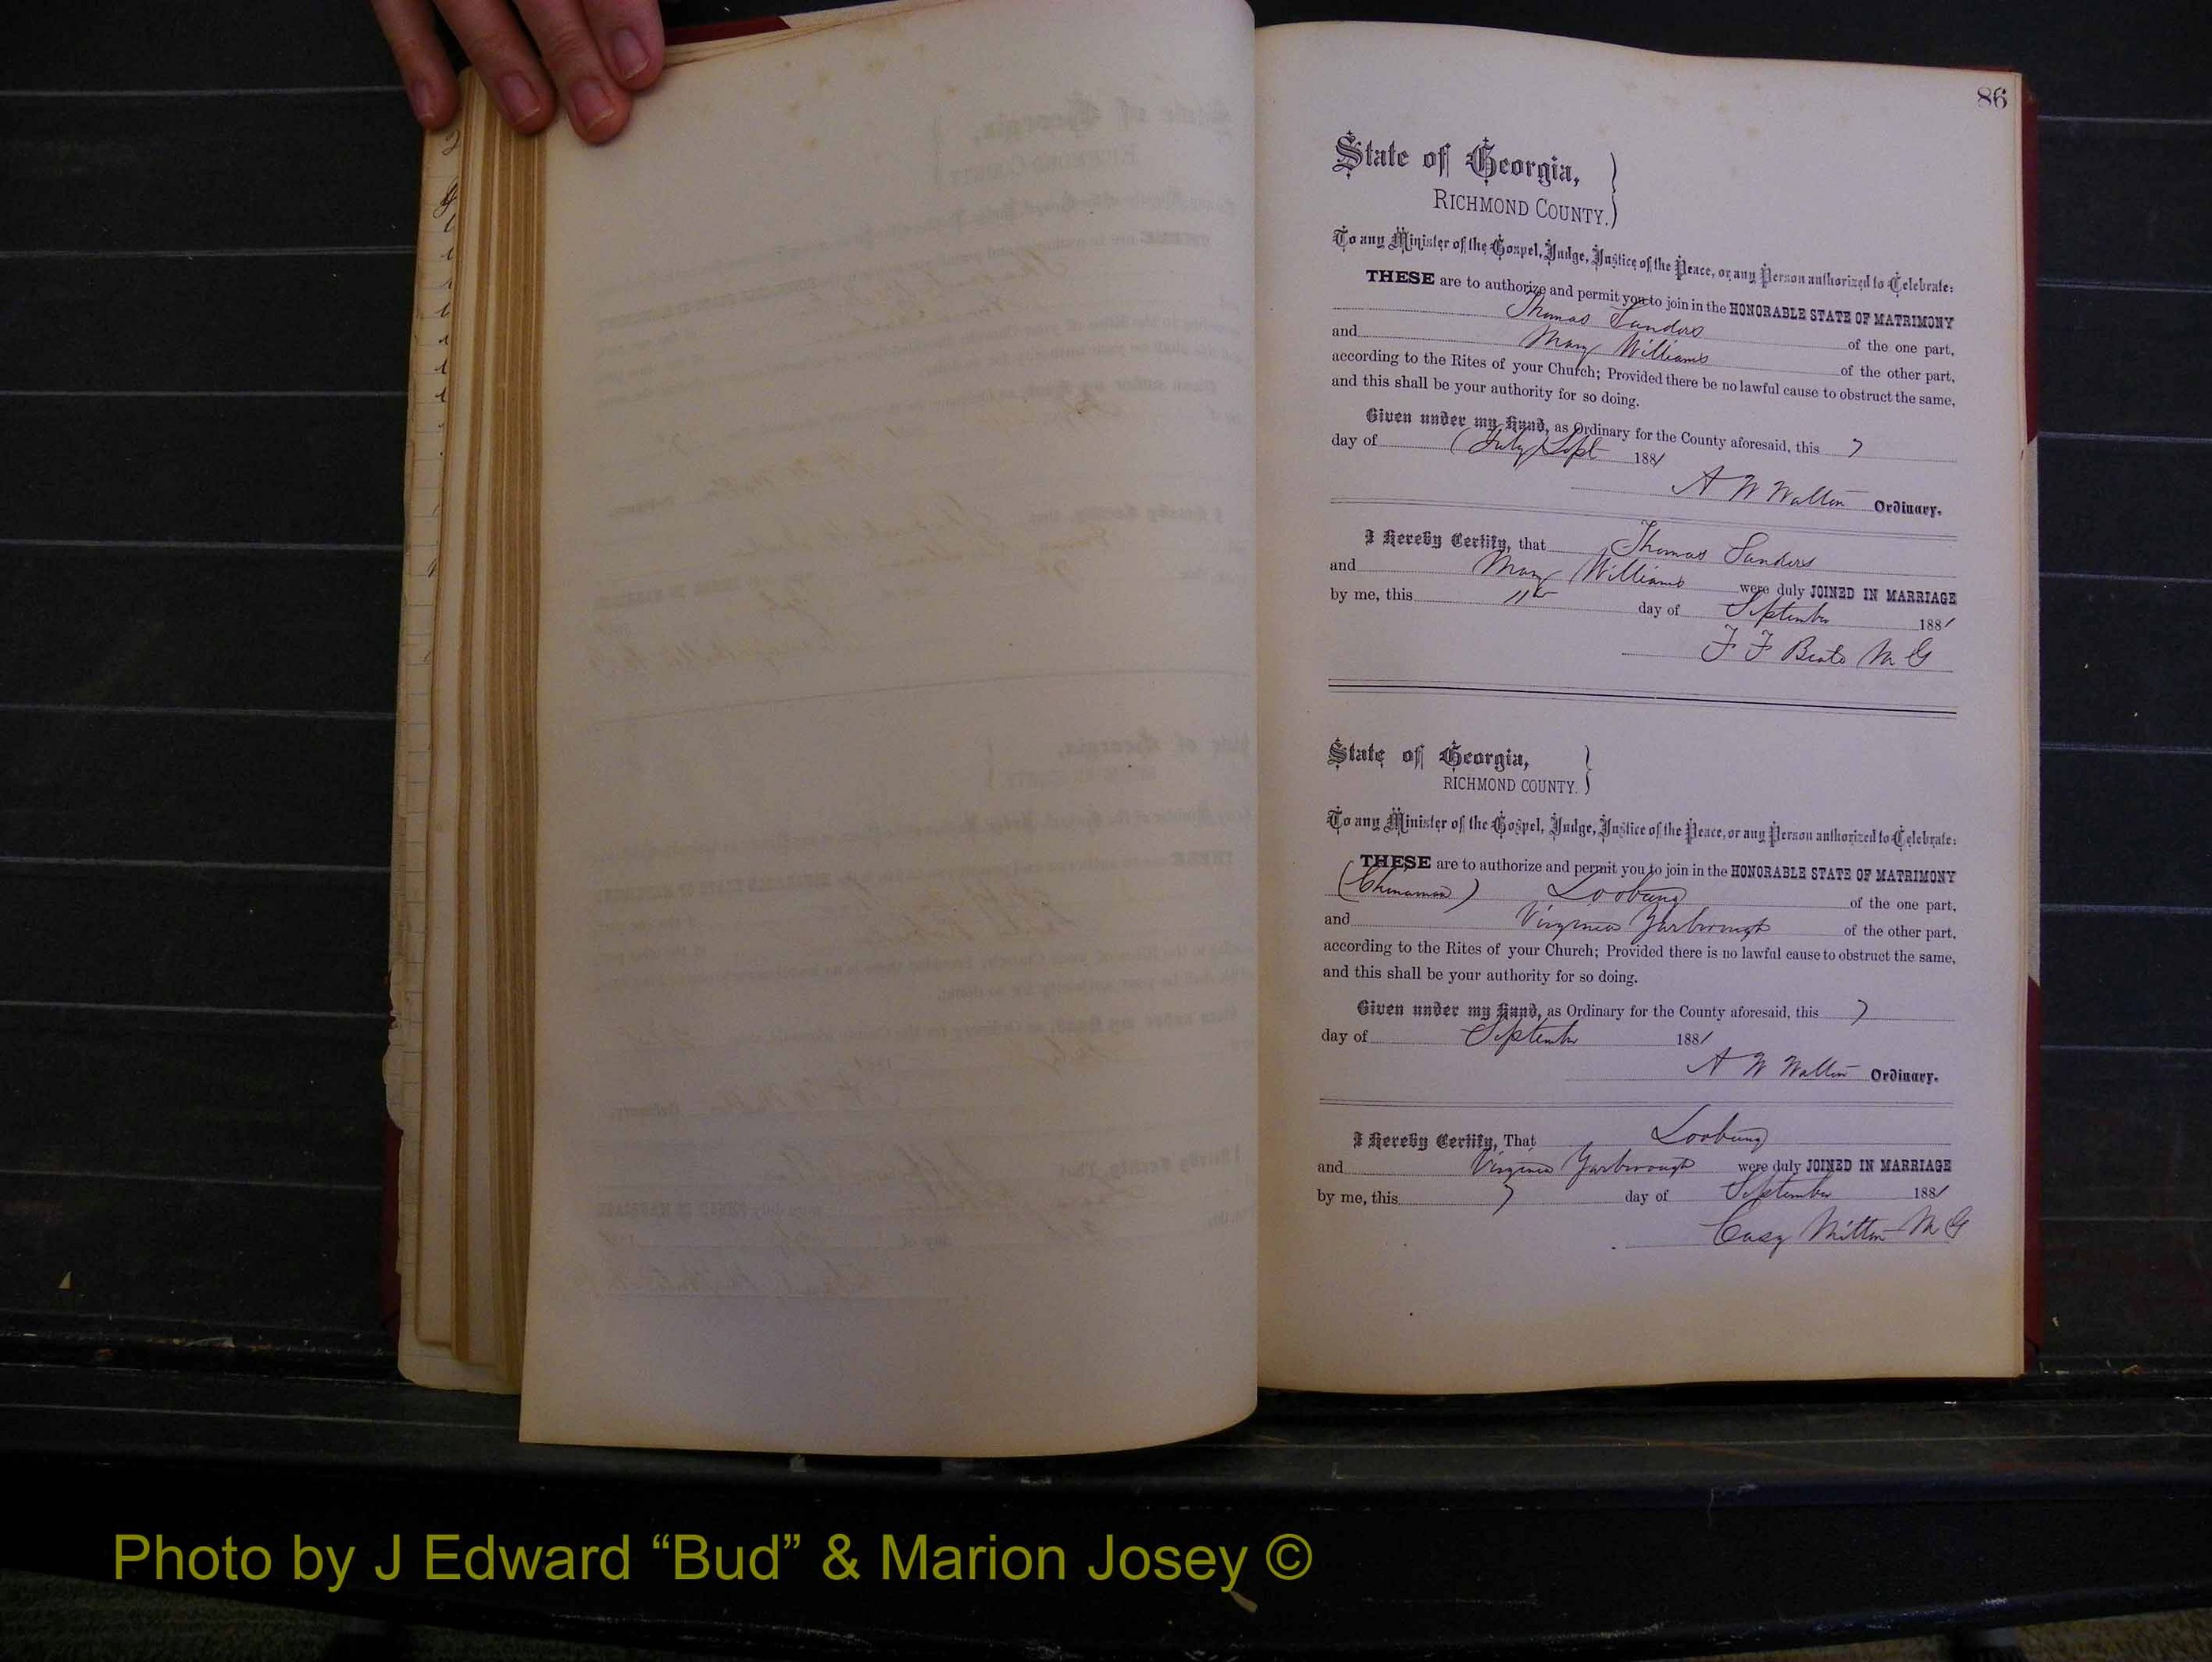 86
State of Georgia,
RICHMOND COUNTY.
To any Minister of the Gospel, Judge, Justice of the Peace, or any Person authorized to Celebrate:
THESE are to authorize and permit you to join in the HONORABLE STATE OF MATRIMONY
Thomas Sanders of the one part,
and Mary Williams of the other part,
according to the Rites of your Church; Provided there be no lawful cause to obstruct the same,
and this shall be your authority for so doing.
Given under my Hand, as Ordinary for the County aforesaid, this 7
day of (July) Sept 1881
A W Walton Ordinary.
I Hereby Certify, that Thomas Sanders
and Mary Williams were duly JOINED IN MARRIAGE
by me, this 11th day of September 1881
F F M G
State of Georgia,
RICHMOND COUNTY.
To any Minister of the Gospel, Judge, Justice of the Peace, or any Person authorized to Celebrate:
THESE are to authorize and permit you to join in the HONORABLE STATE OF MATRIMONY
(Chinaman) Loobung of the one part,
and Virginia Yarborough of the other part,
according to the Rites of your Church; Provided there is no lawful cause to obstruct the same,
and this shall be your authority for so doing.
Given under my Hand, as Ordinary for the County aforesaid, this 7
day of September 1881
A W Walton Ordinary.
I Hereby Certify, That Loobung
and Virginia Yarborough were duly JOINED IN MARRIAGE
by me, this 7 day of September 1881
M G
Photo by J Edward “Bud” & Marion Josey ©